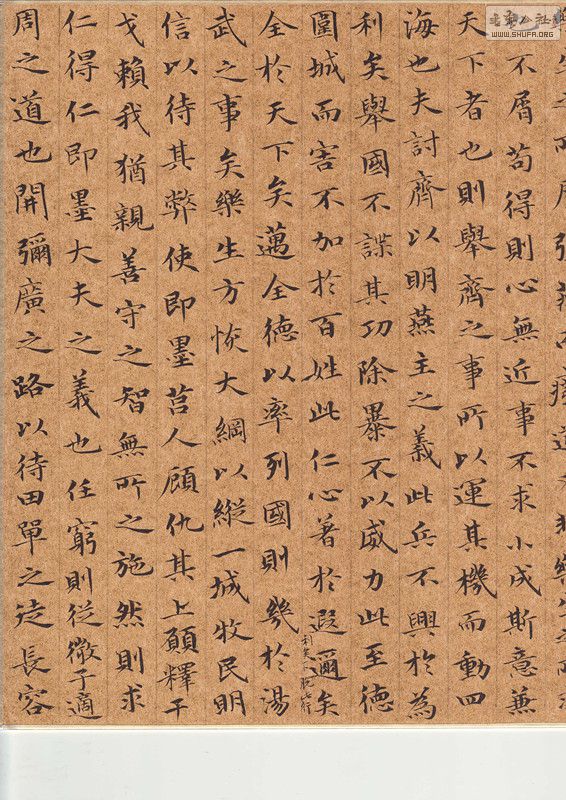 不屑苟得則心無近事不求小成斯意兼
天下者也則舉齊之事所以運其機而動四
海也夫討齊以明燕主之義此兵不興於為
利矣舉國不諜其功除暴不以威力此至德
圍城而害不加於百姓此仁心著於遐邇矣
利矣下脫此行
全於天下矣邁全德以率列國則幾於湯
武之事矣樂生方恢大綱以縱一城牧民明
信以待其弊使即墨莒人顧仇其上願釋干
戈賴我猶親善守之智無所之施然則求
仁得仁即墨大夫之義也任窮則從微子適
周之道也開彌廣之路以待田單之徒長容
WWW.SHUFA.ORG